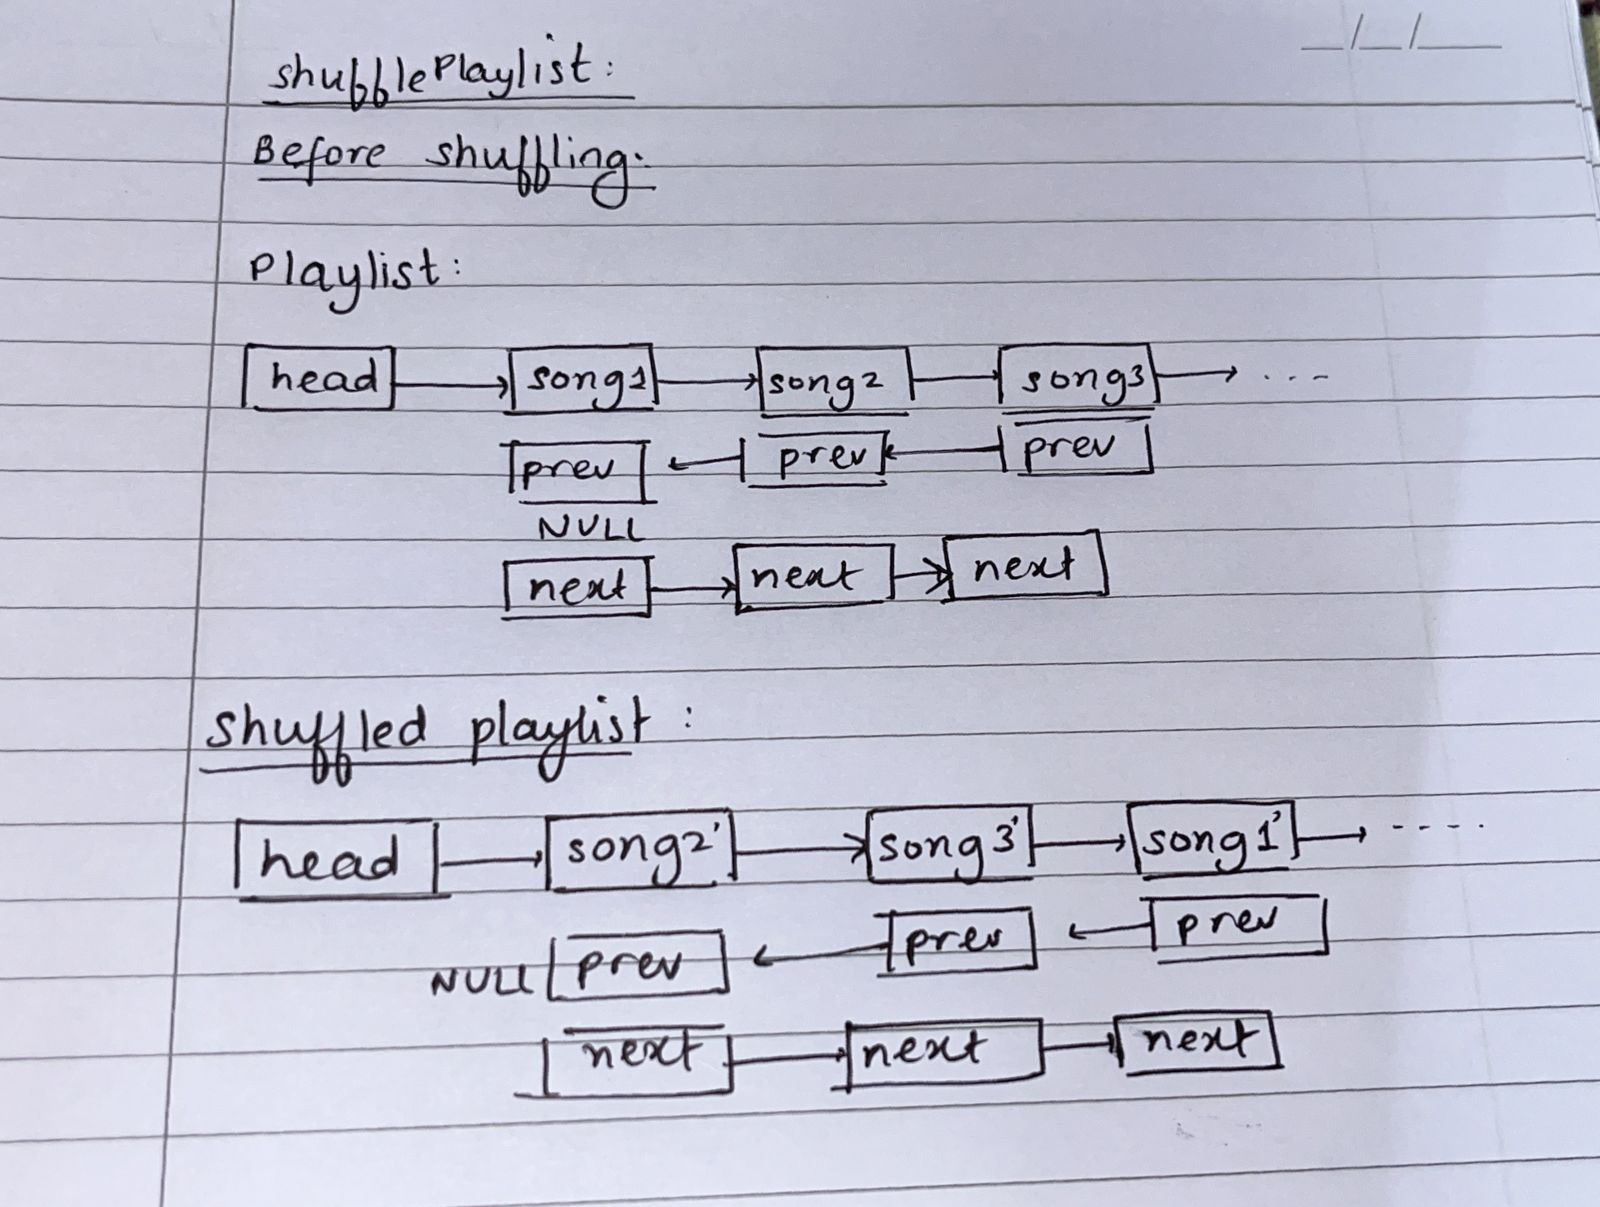 shufflePlaylist:
Before shuffling:
Playlist:
head song1 song2 song3 ...
prev prev prev
NULL
next next next
shuffled playlist :
head song2' song3' song1' ....
NULL prev prev prev
next next next